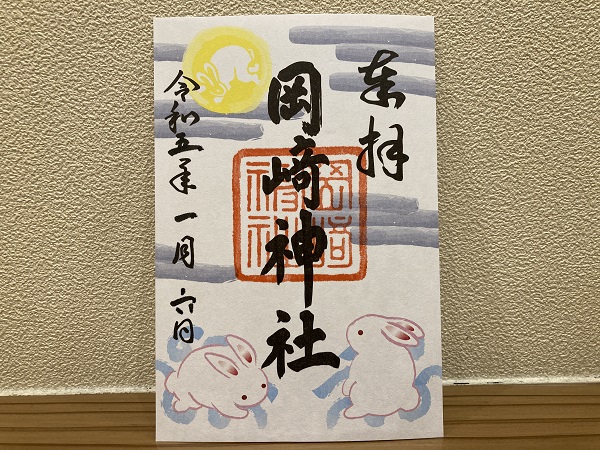 奉拝
岡崎神社
岡崎神社
令和五年一月六日